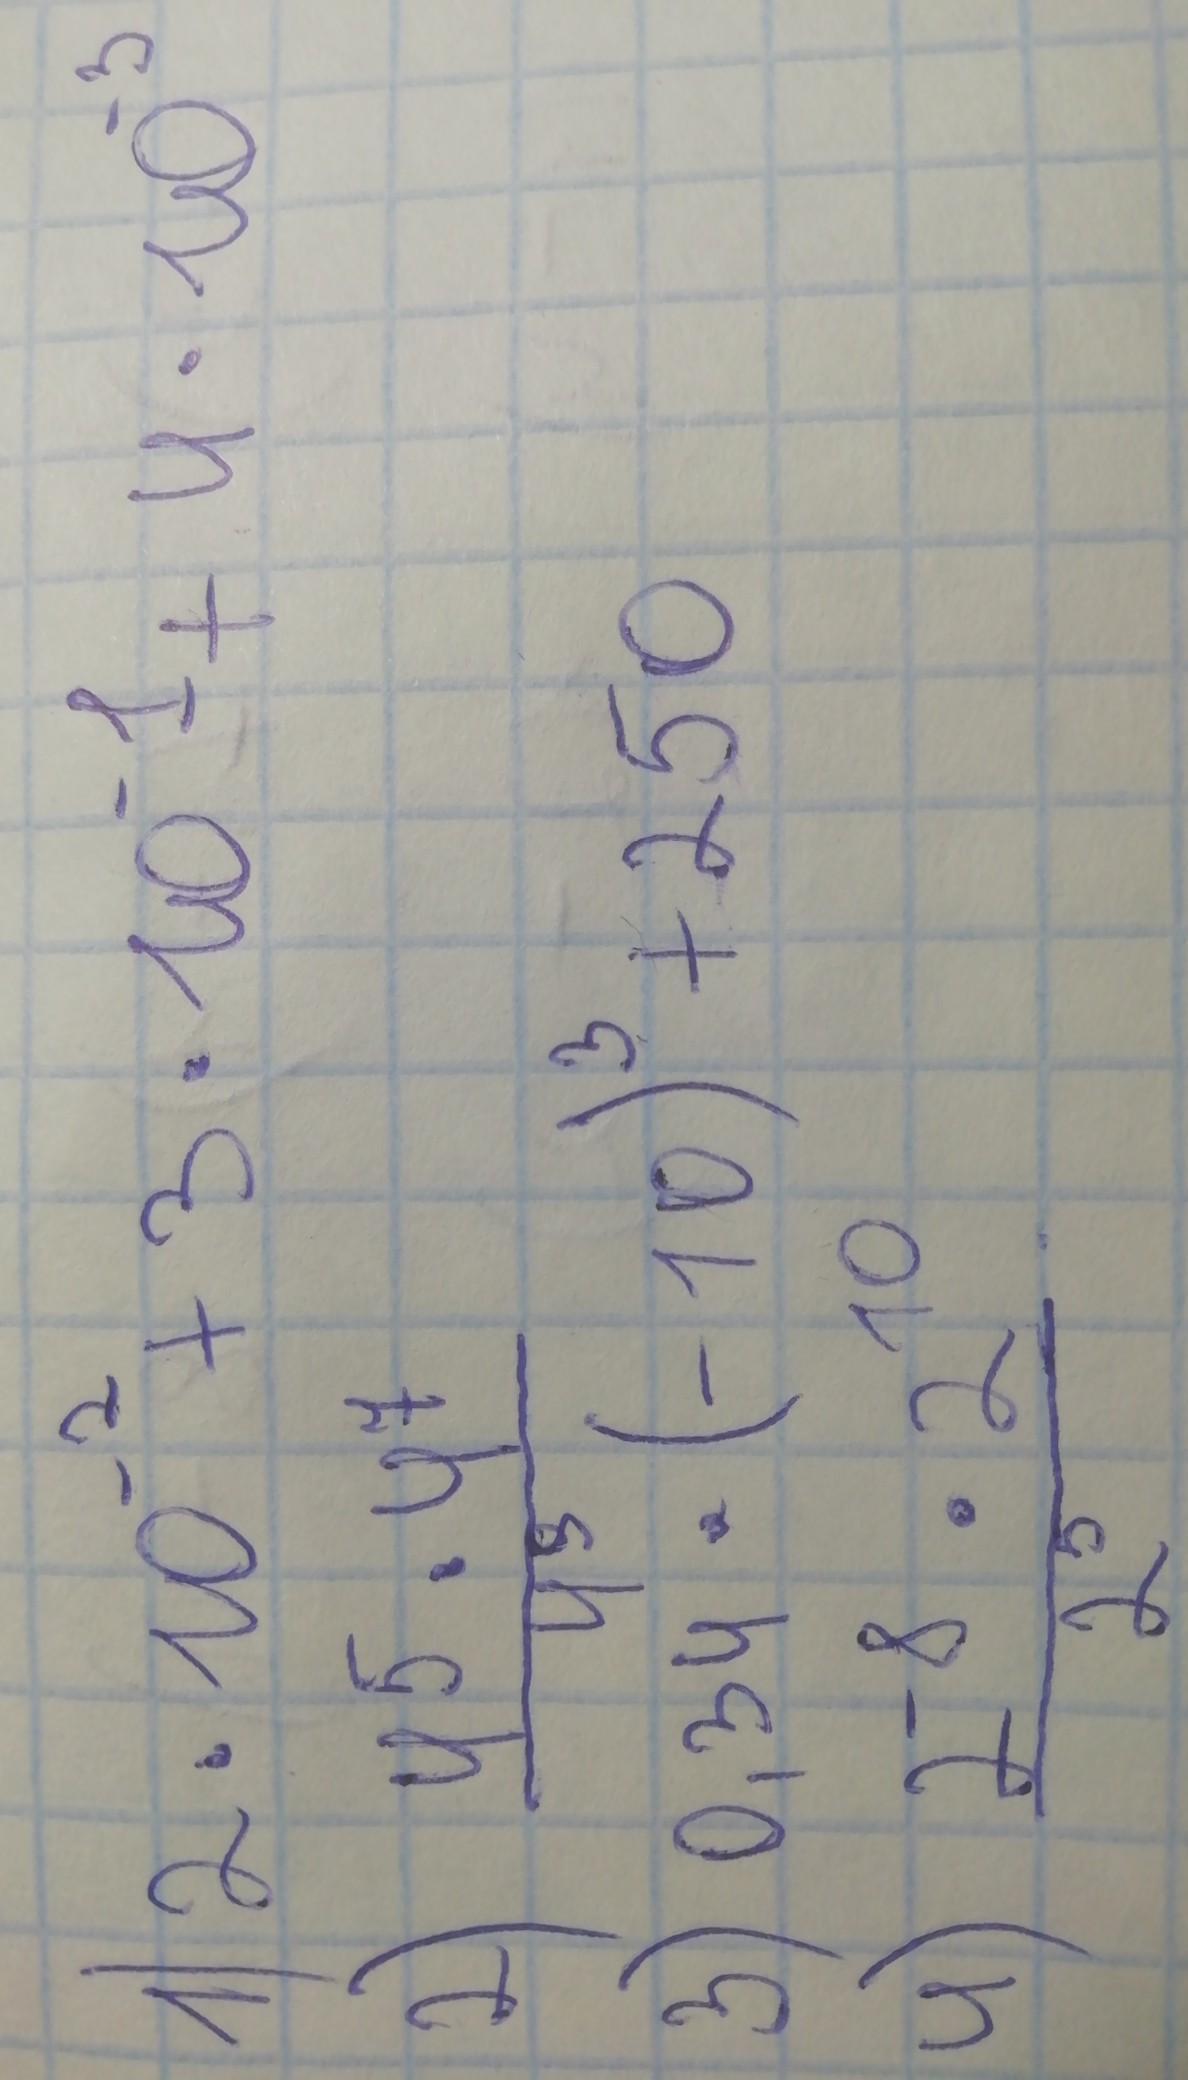 1) 2 · 10⁻² + 3 · 10⁻¹ + 4 · 10⁻³
2) (4⁵ · 4⁷) / 4⁹
3) 0,34 · (-10)³ + 250
4) (2⁻⁸ · 2¹⁰) / 2⁵